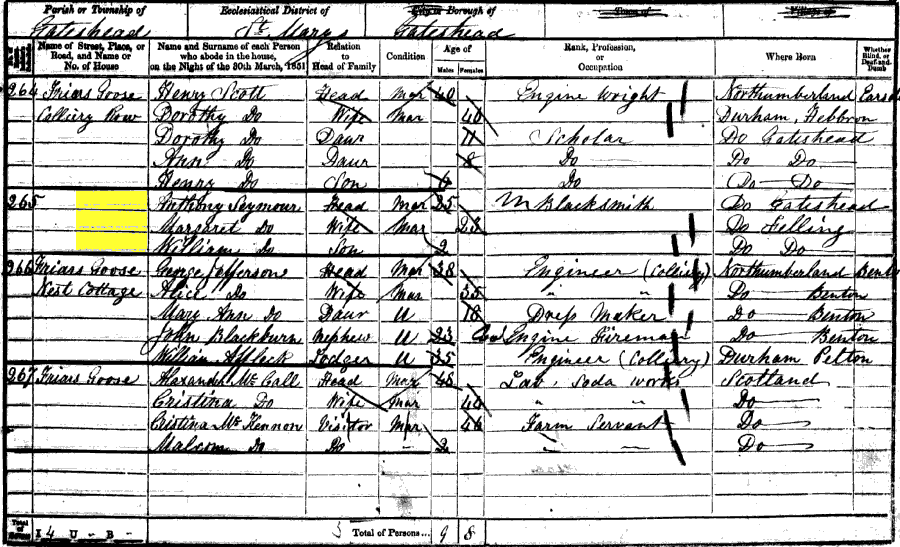 Parish or Township of Ecclesiastical District of City or Borough of Town of Village of
Gateshead St Marys Gateshead
Name of Street, Place, or Road, and Name or No. of House Name and Surname of each Person who abode in the house, on the Night of the 30th March, 1851 Relation to Head of Family Condition Age of Males Females Rank, Profession, or Occupation Where Born Whether Blind, or Deaf-and-Dumb
264 Friars Goose Henry Scott Head Mar 40 Engine Wright Northumberland
Colliery Row Dorothy Do Wife Mar 40 Durham, Hebbron
Dorothy Do Daur 11 Scholar Do Gateshead
Ann Do Daur 8 Do Do Do
Henry Do Son 6 Do Do Do
265 Anthony Seymour Head Mar 25 M Blacksmith Do Gateshead
Margaret Do Wife Mar 23 Do Felling
William Do Son 2 Do Do
266 Friars Goose George Jefferson Head Mar 38 Engineer (Colliery) Northumberland Bento
West Cottage Alice Do Wife Mar 35 " " Do Benton
Mary Ann Do Daur U 18 Dress Maker Do Benton
John Blackburn Nephew U 23 Engine Fireman Do Benton
William Affleck Lodger U 25 Engineer (Colliery) Durham Pelton
267 Friars Goose Alexander Mc Call Head Mar 48 Lab. Soda Works Scotland
Cristina Do Wife Mar 40 " " Do
Cristina Mc Kennon Visitor Mar 46 Farm Servant Do
Malcom Do Do - 2 Do
Total of Houses 14 U - B - Total of Persons... 9 8